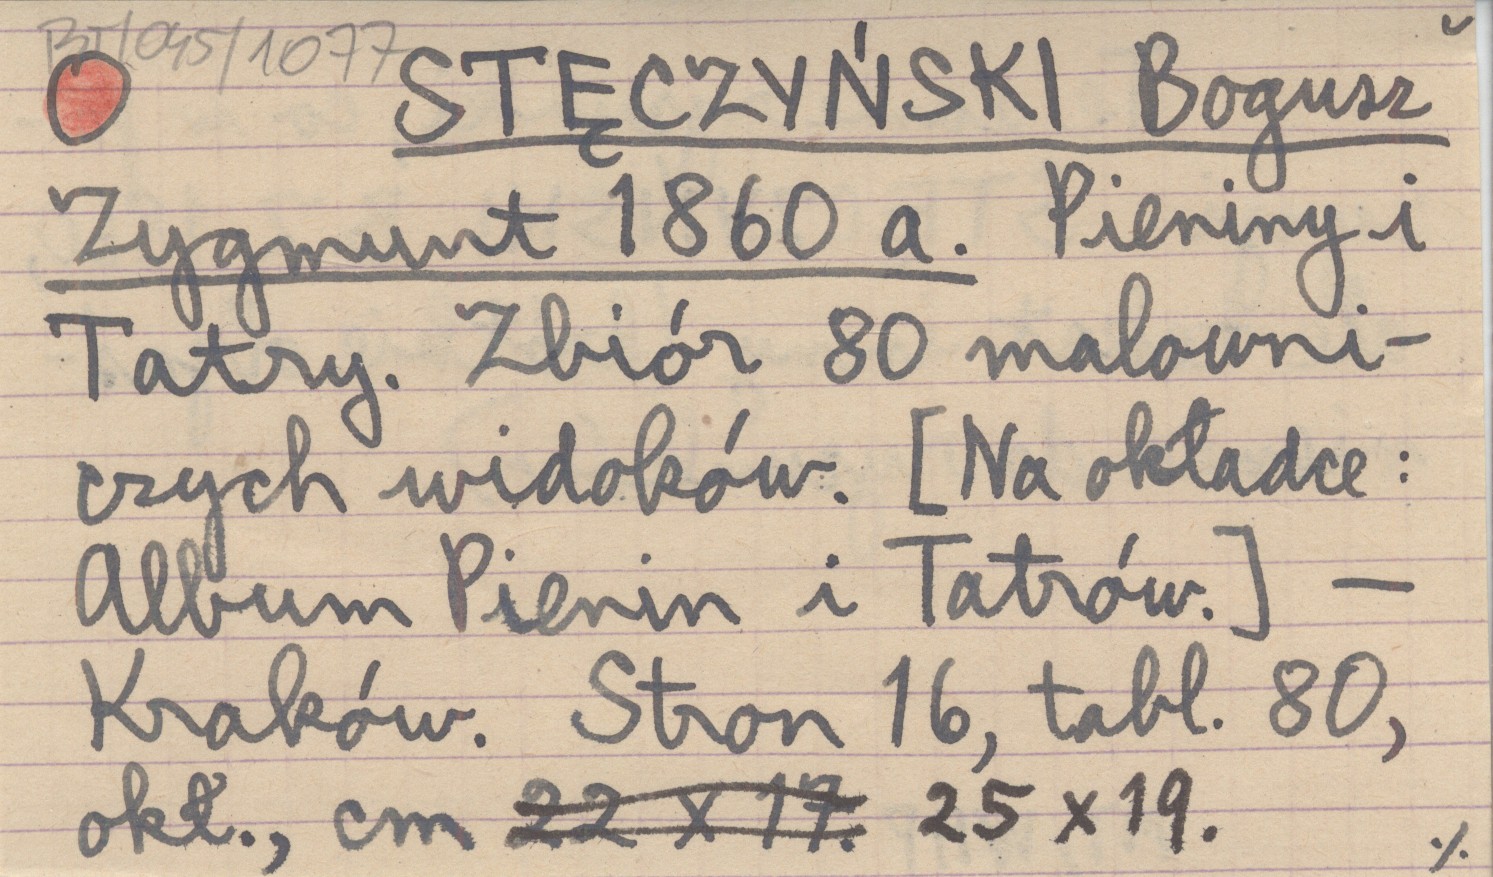 BT/045/1077
STĘCZYŃSKI Bogusz
Zygmunt 1860 a. Pieniny i
Tatry. Zbiór 80 malowni-
czych widoków. [Na okładce:
Album Pienin i Tatrów.] —
Kraków. Stron 16, tabl. 80,
okł., cm 22 x 17. 25 x 19.
./.